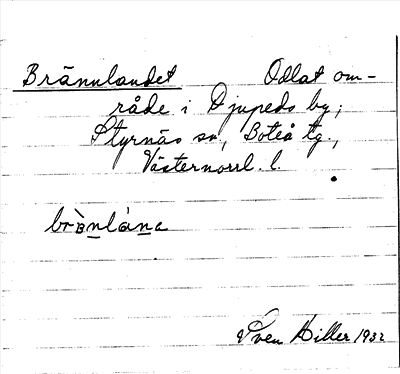 Brännlandet Odlat om-
råde i Djupeds by;
Styrnäs sn, Boteå tg.,
Västernorrl. l.
brä̀nlána
Sven Hiller 1932